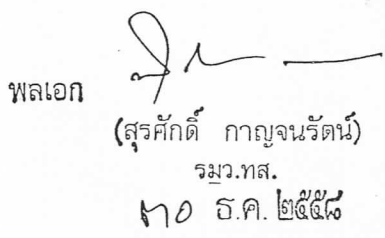 พลเอก
(สุรศักดิ์ กาญจนรัตน์)
รมว.ทส.
๓๐ ธ.ค. ๒๕๕๘